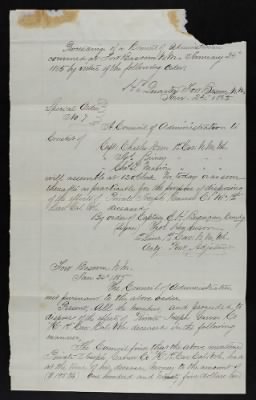 Proceedings of a Council of Administration
convened at Fort Bascom N.M. January 24th
1865 by virtue of the following order.
Hd Quarters Fort Bascom N.M.
Jan. 24 1865
Special Orders
No 7
A Council of Administration to
Consist of
Capt Charles 1st Cav N.M. Vols
will assemble at 12 o'clock M. today or as soon
thereafter as practicable for the purpose of disposing
of the effects of Private Joseph Co K 1st
Cav Cal. Vols deceased.
By order of Captain E. H. Bergmann Comdg
Signed
1st Cav N.M. Vols
Actg Post Adjutant
Fort Bascom N.M.
Jan 24th 1865
The Council of Administration
met pursuant to the above order.
Present, All the members, and proceeded to
dispose of the effects of Private Joseph
Co K 1st Cav. Cal. Vols deceased in the following
manner.
The Council find that the above mentioned
Private Joseph Co K 1st Cav. Cal. Vols. had
at the time of his decease, money to the amount of
One hundred and five dollars